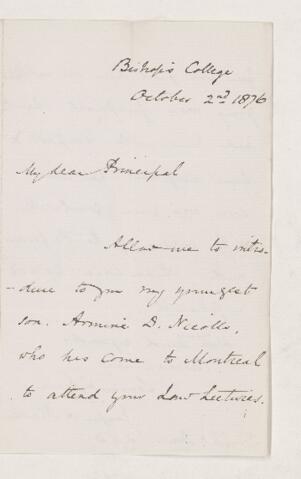 Bishop's College
October 2nd 1876
My dear Principal
Allow me to intro-
-duce to you my youngest
son. Armine D. Nicolls,
who has come to Montreal
to attend your Law Lectures.